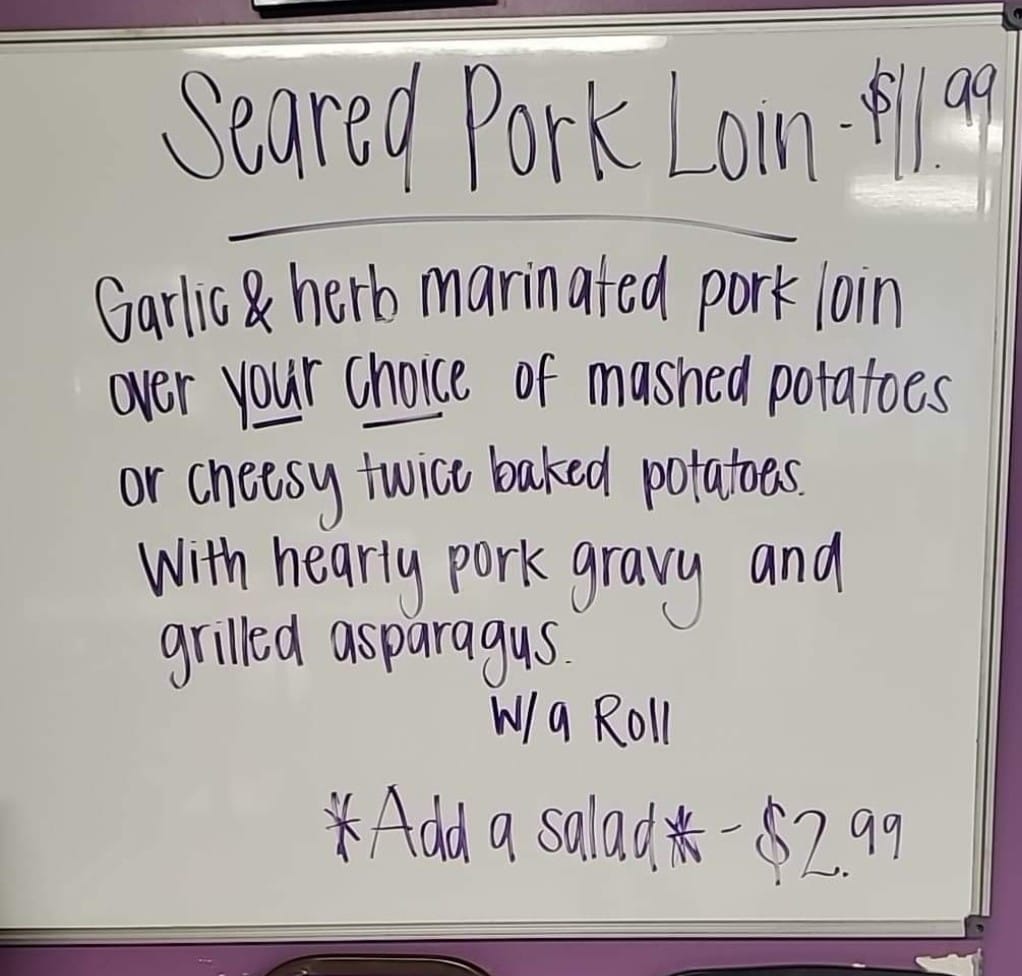 Seared Pork Loin - $11.99
Garlic & herb marinated pork loin
over your choice of mashed potatoes
or cheesy twice baked potatoes.
With hearty pork gravy and
grilled asparagus.
W/ a Roll
*Add a salad* - $2.99